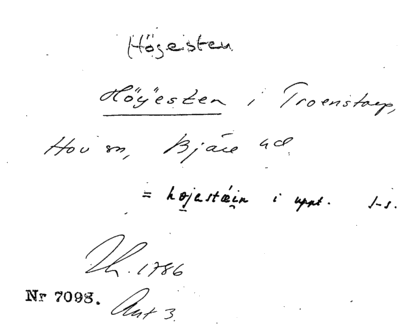 Högesten
Höÿesten i Troenstorp,
Hov sn, Bjäre hd.
= højestæin i uppt. 1-s.
Th. 1786
Nr 7098. Ant 3.